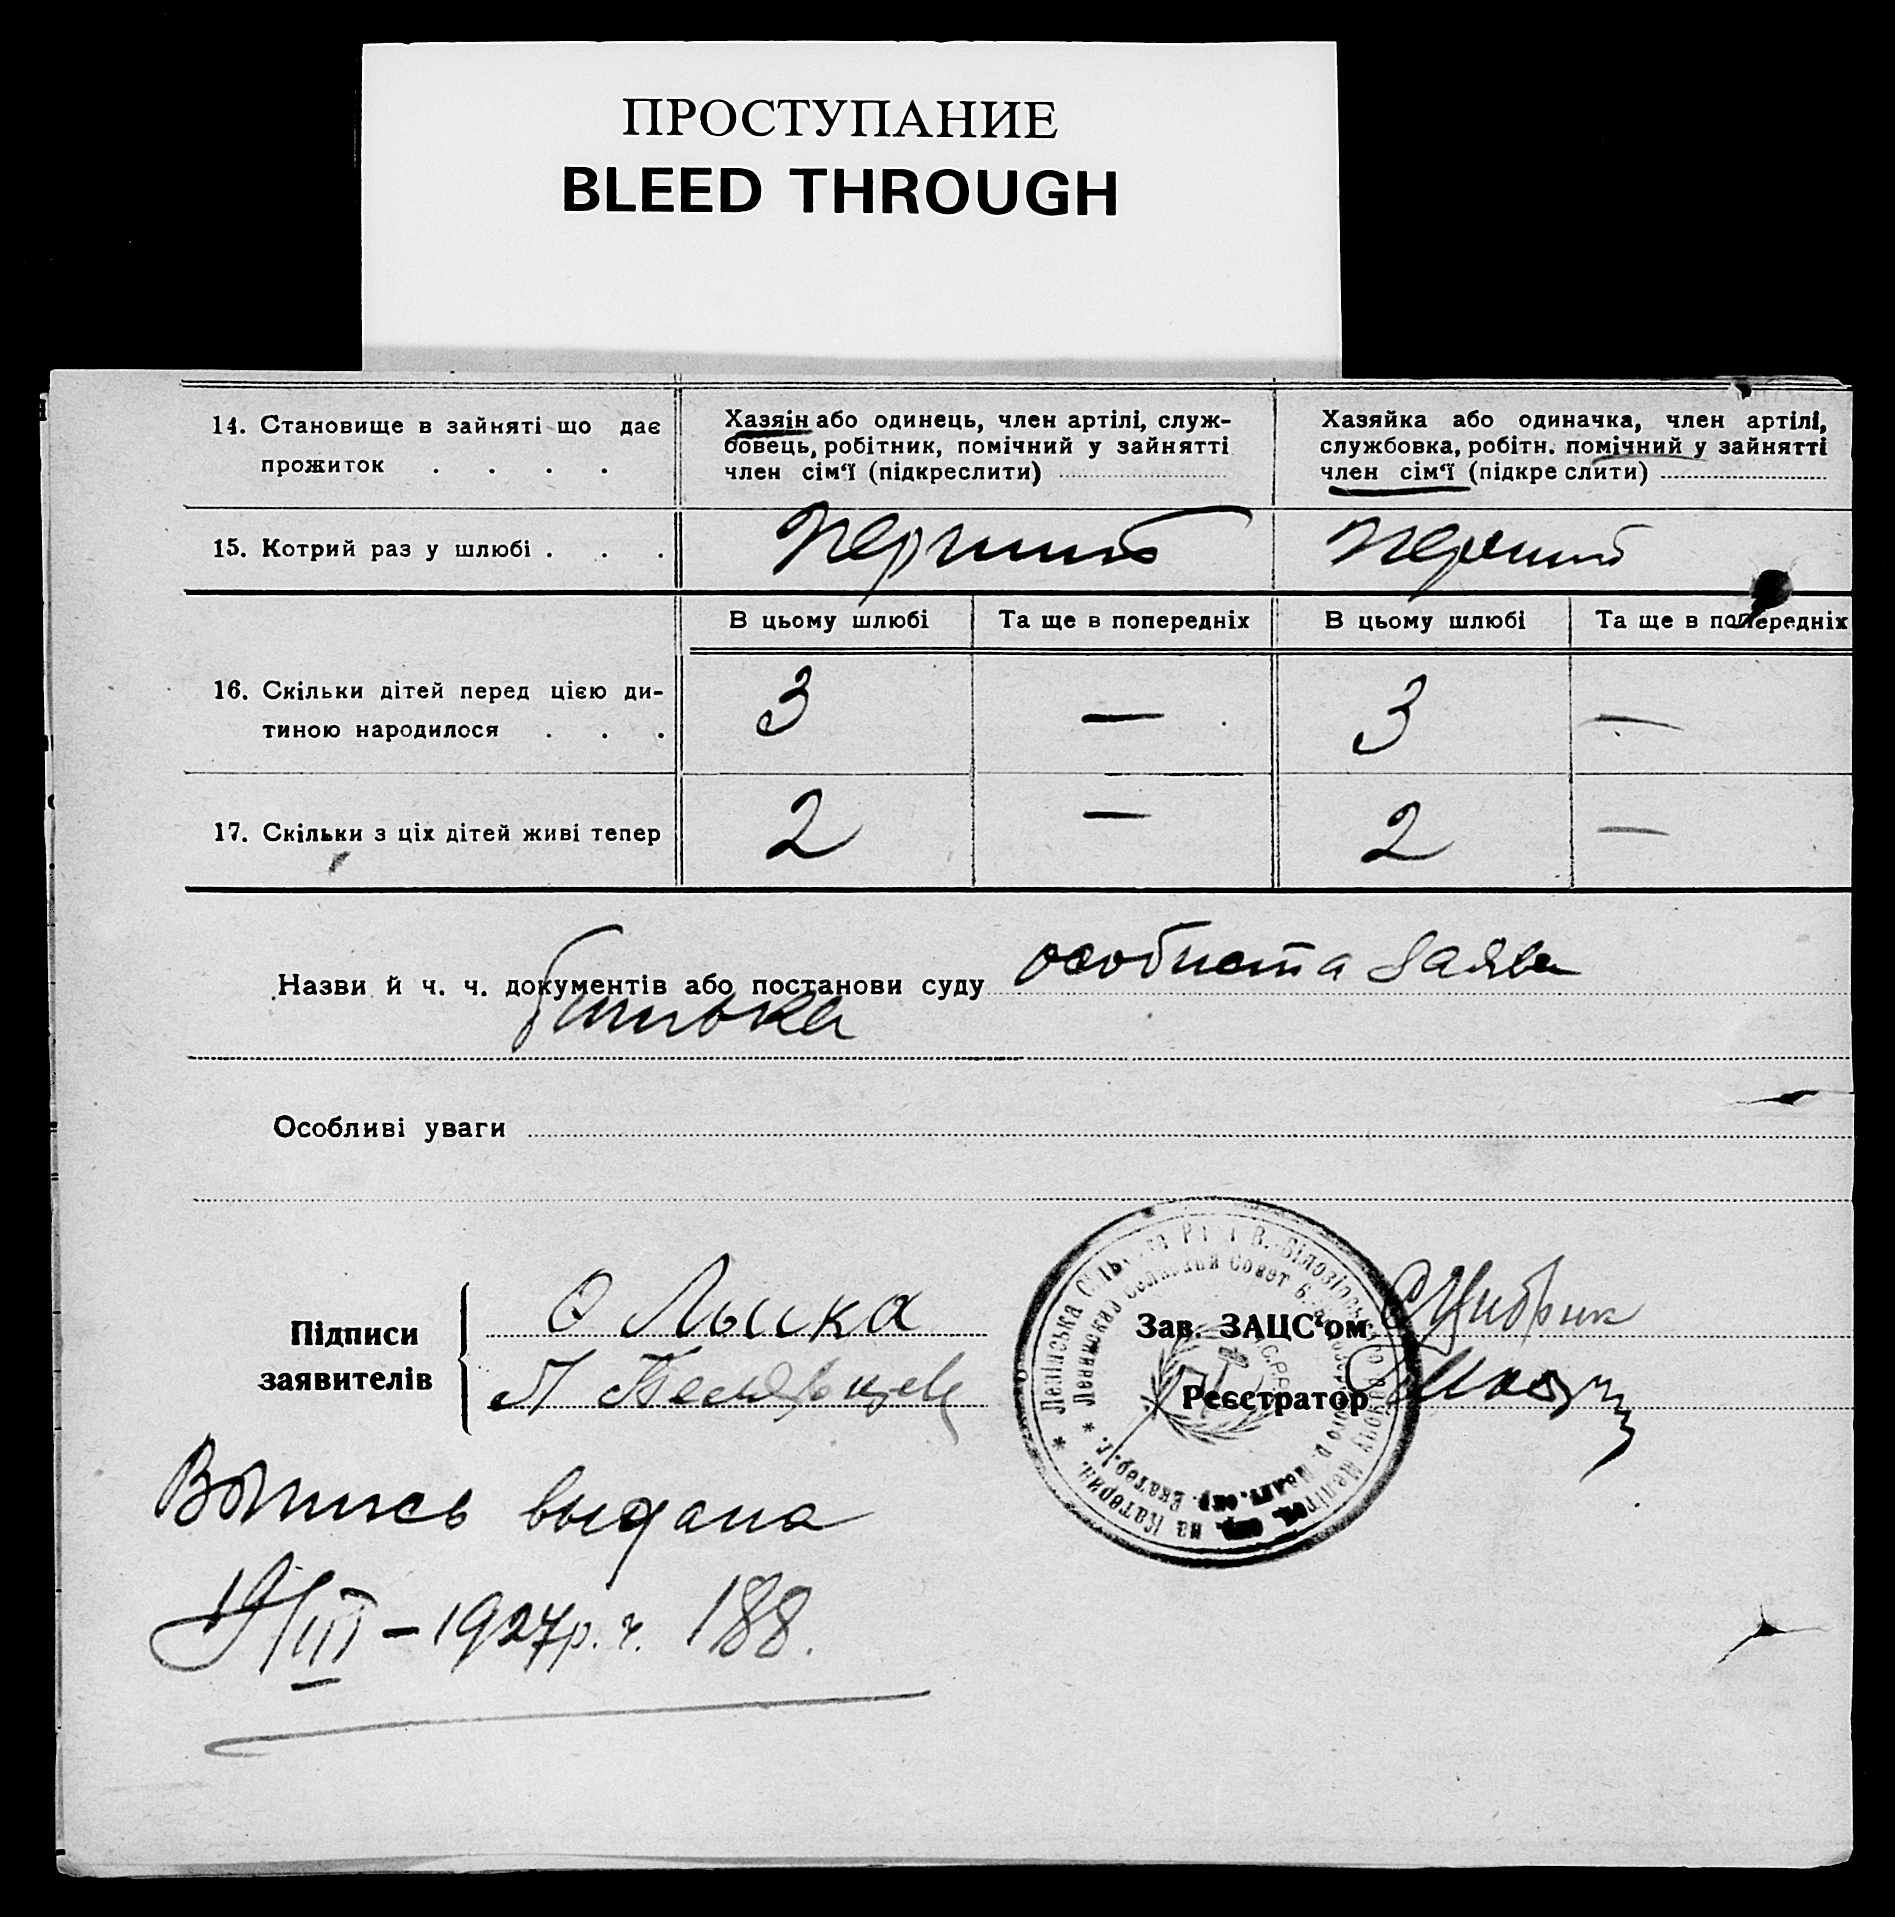 ПРОСТУПАНИЕ
BLEED THROUGH
14. Становище в зайняті що дає прожиток . . . .
Хазяін або одинець, член артілі, служ-
бовець, робітник, помічний у зайнятті
член сім‘ї (підкреслити)
Хазяйка або одиначка, член артілі,
службовка, робітн. помічний у зайнятті
член сім‘ї (підкре слити)
15. Котрий раз у шлюбі . . .
перший
перший
В цьому шлюбі
Та ще в попередніх
В цьому шлюбі
Та ще в попередніх
16. Скільки дітей перед цією ди-
тиною народилося . . .
3
—
3
—
17. Скільки з ціх дітей живі тепер
2
—
2
—
Назви й ч. ч. документів або постанови суду особиста заява
батька
Особливі уваги
Підписи
заявителів
О Лыска
Зав. ЗАЦС‘ом
С Цибрик
Реєстратор
Ленінська
Выпись выдана
19/III – 1927 р. ч. 188.